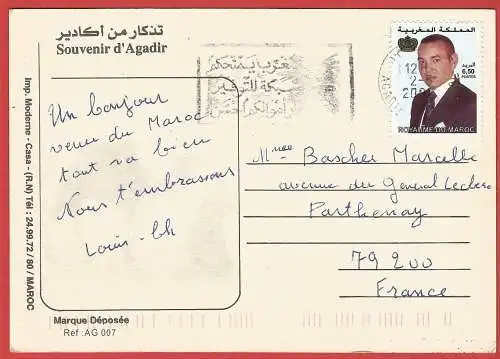 تذكار من أكادير
Souvenir d'Agadir
المملكة المغربية
البريد
6,50
POSTES
ROYAUME DU MAROC
12
2
20
Un bonjour
venu du Maroc
tout va bien
Nous t'embrassons
Louis-
Mme Bascher Marcelle
avenue du General Leclerc
Parthenay
79200
France
Imp. Moderne - Casa - (R.N) Tél : 24.99.72 / 80 / MAROC
Marque Déposée
Réf : AG 007